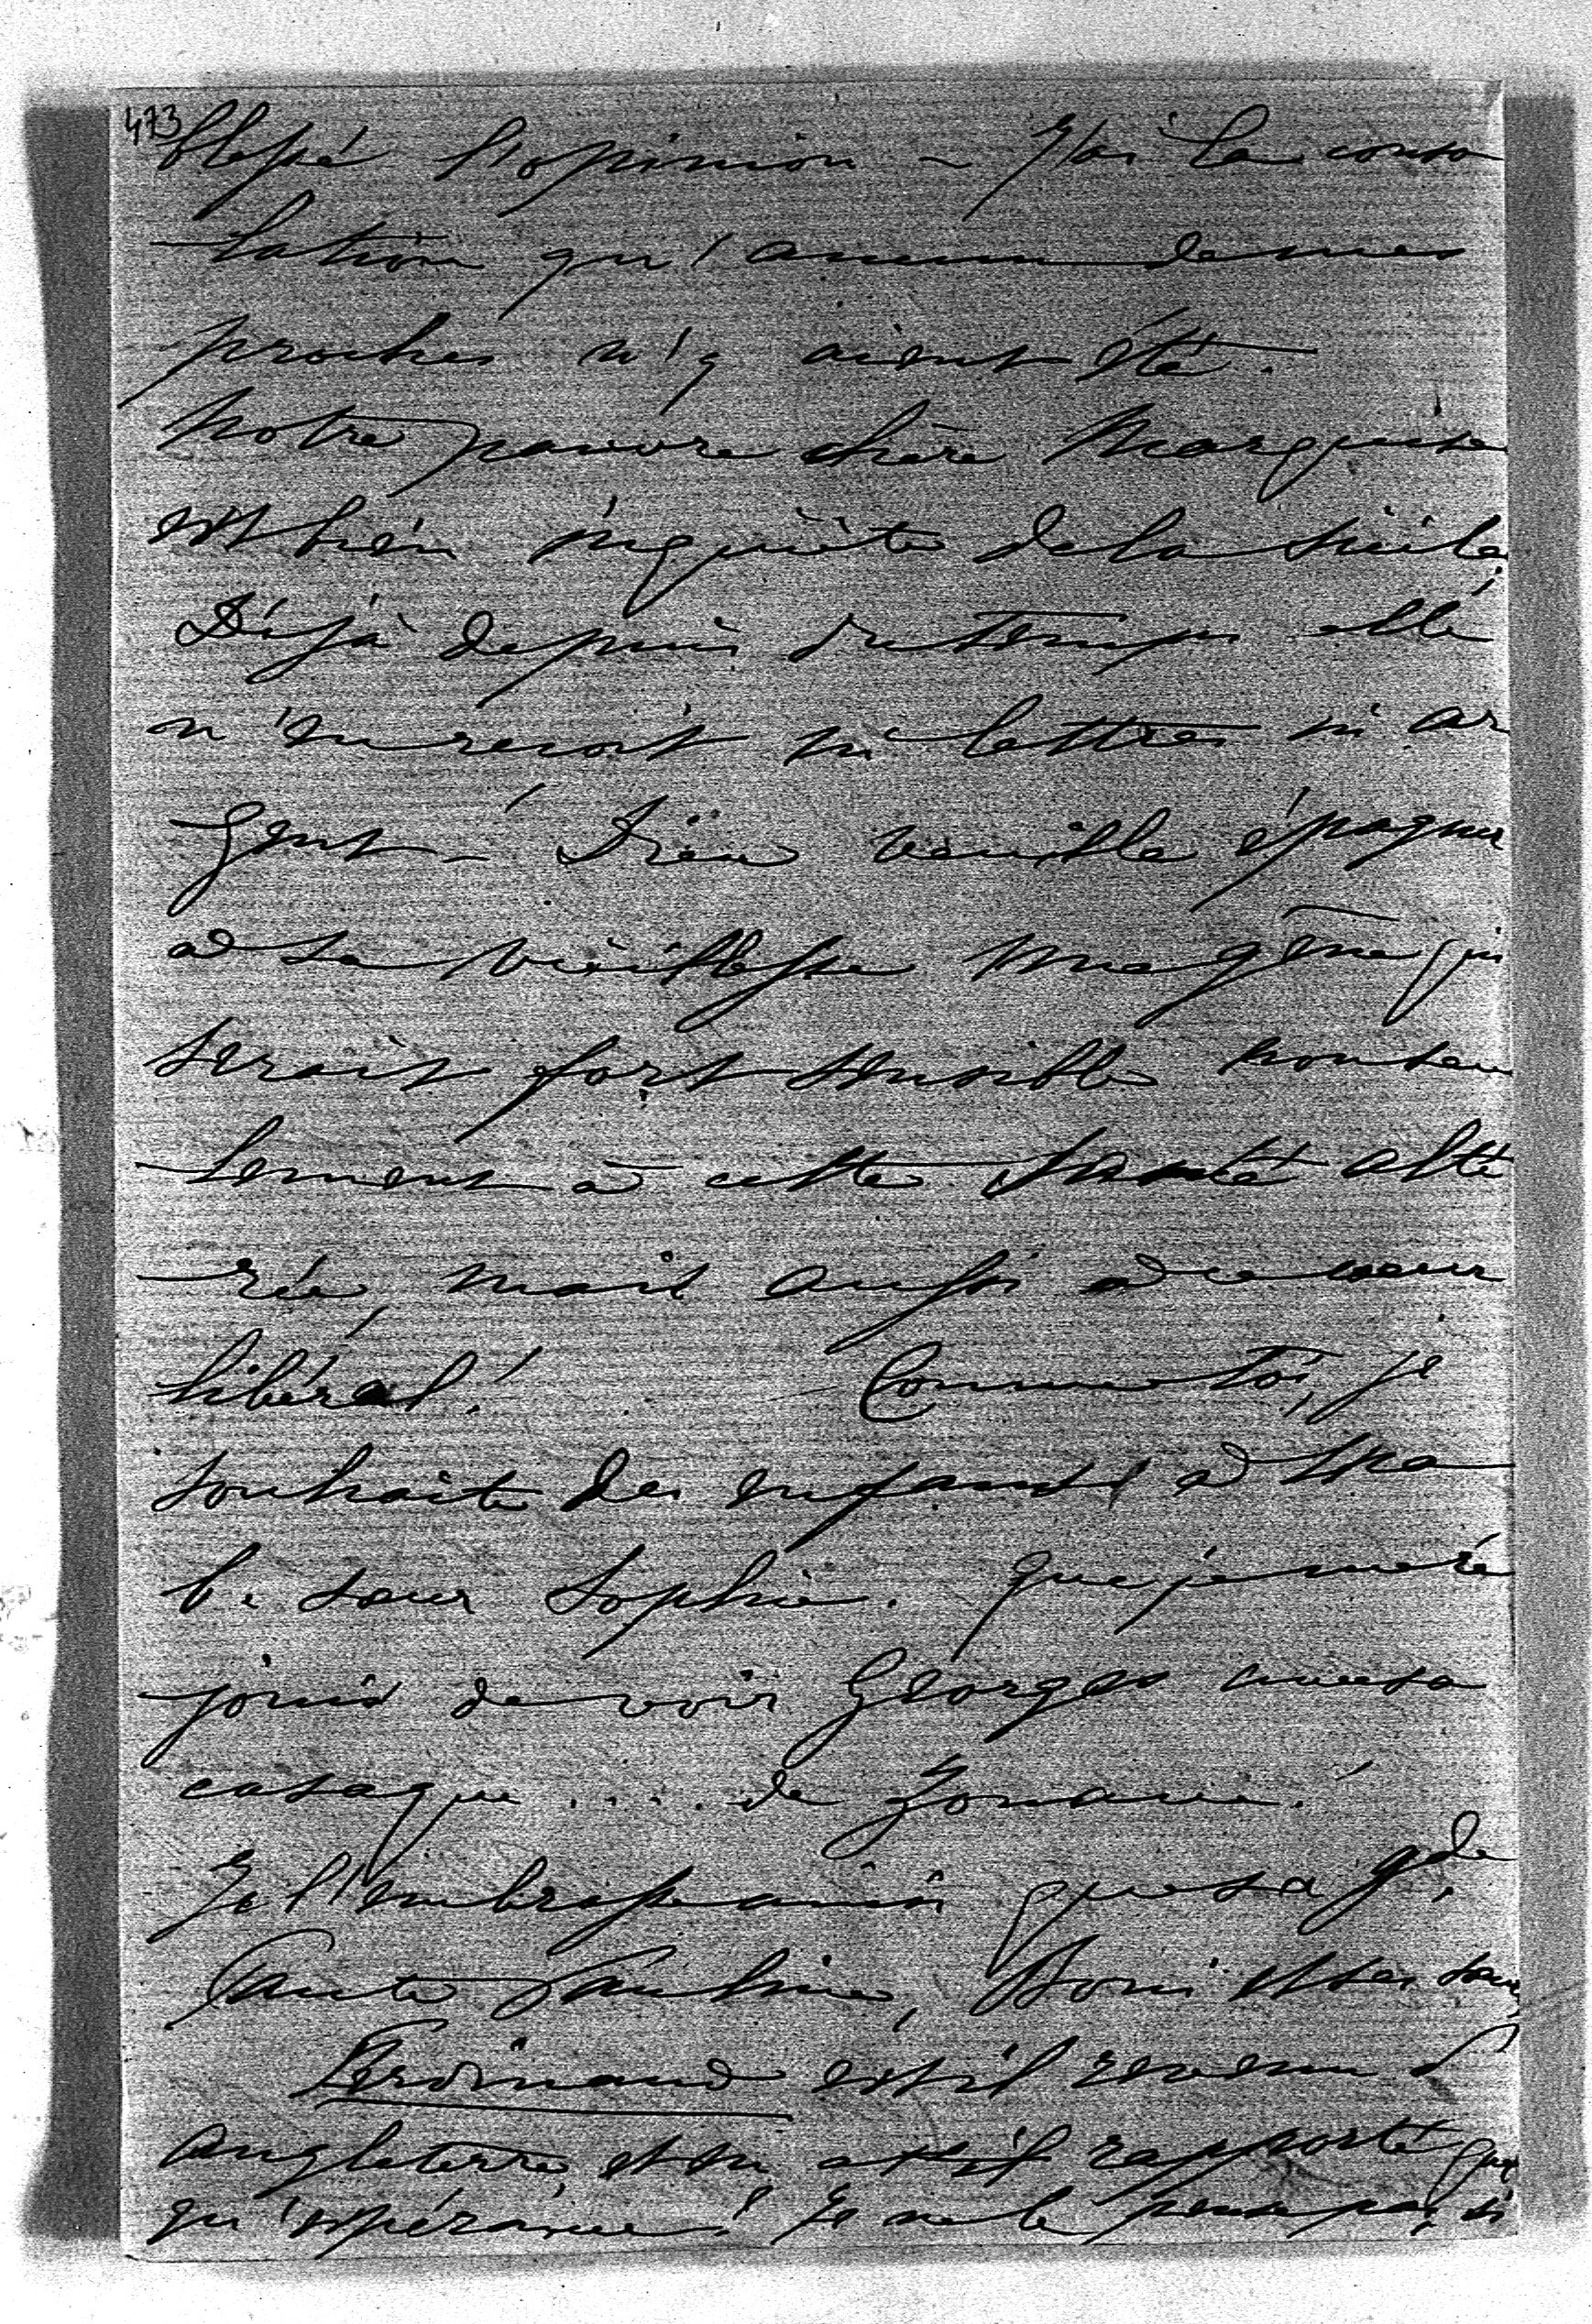 473
blessé l'opinion – J'ai la conso
lation qu'aucun de mes
proches n'y aient été.
Notre pauvre chère Marquise
est bien inquiète de la Sicile.
Déjà depuis du temps elle
n'en reçoit ni lettres ni ar
gent – Dieu veuille épagner
à sa vieillesse une gêne qui
serait fort sensible non seu
lement à cette santé alté
rée, mais aussi à ce cœur
libéral! Comme toi, je
souhaite des enfants à ma
b. sœur Sophie. Que je me ré
jouis de voir Georges avec sa
casaque .... de Zouave!
Je l'embrasse ainsi que sa gde
Tante Pauline, et ses sœurs
Ferdinand est il revenu d'
Angleterre, et en a-t-il rapporté quel
qu'espérance? Je ne le pense pas, si